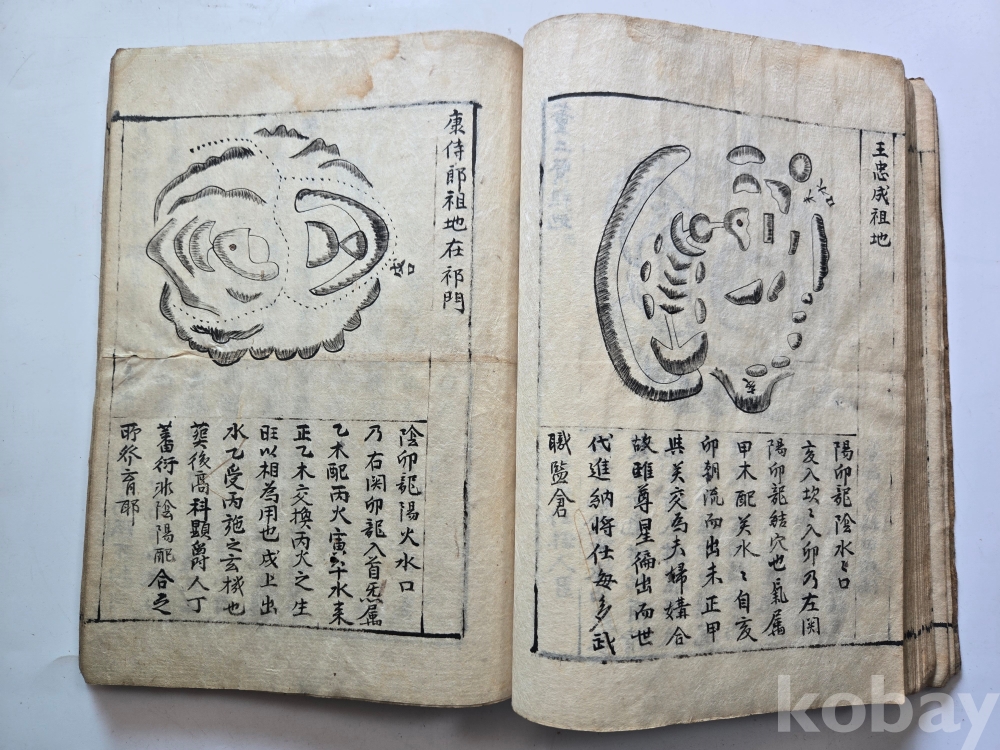 王忠成祖地
水口
亥
陽卯龍陰水口
亥入坎〻入卯乃左関
陽卯龍結穴也氣属
甲木配癸水〻自亥
卯朝流而出未正甲
與癸交為夫婦媾合
故雖尊星徧出而世
代進納將仕每多武
職監倉
康侍郎祖地在祁門
水口
陰卯龍陽火水口
乃右関卯龍入首炁属
乙木配丙火寅午水来
正乙木交換丙火之生
旺以相為用也戌上出
水乙受丙施之玄機也
葬後高科顯爵人丁
蕃衍非陰陽配合之
所發育耶
kobay